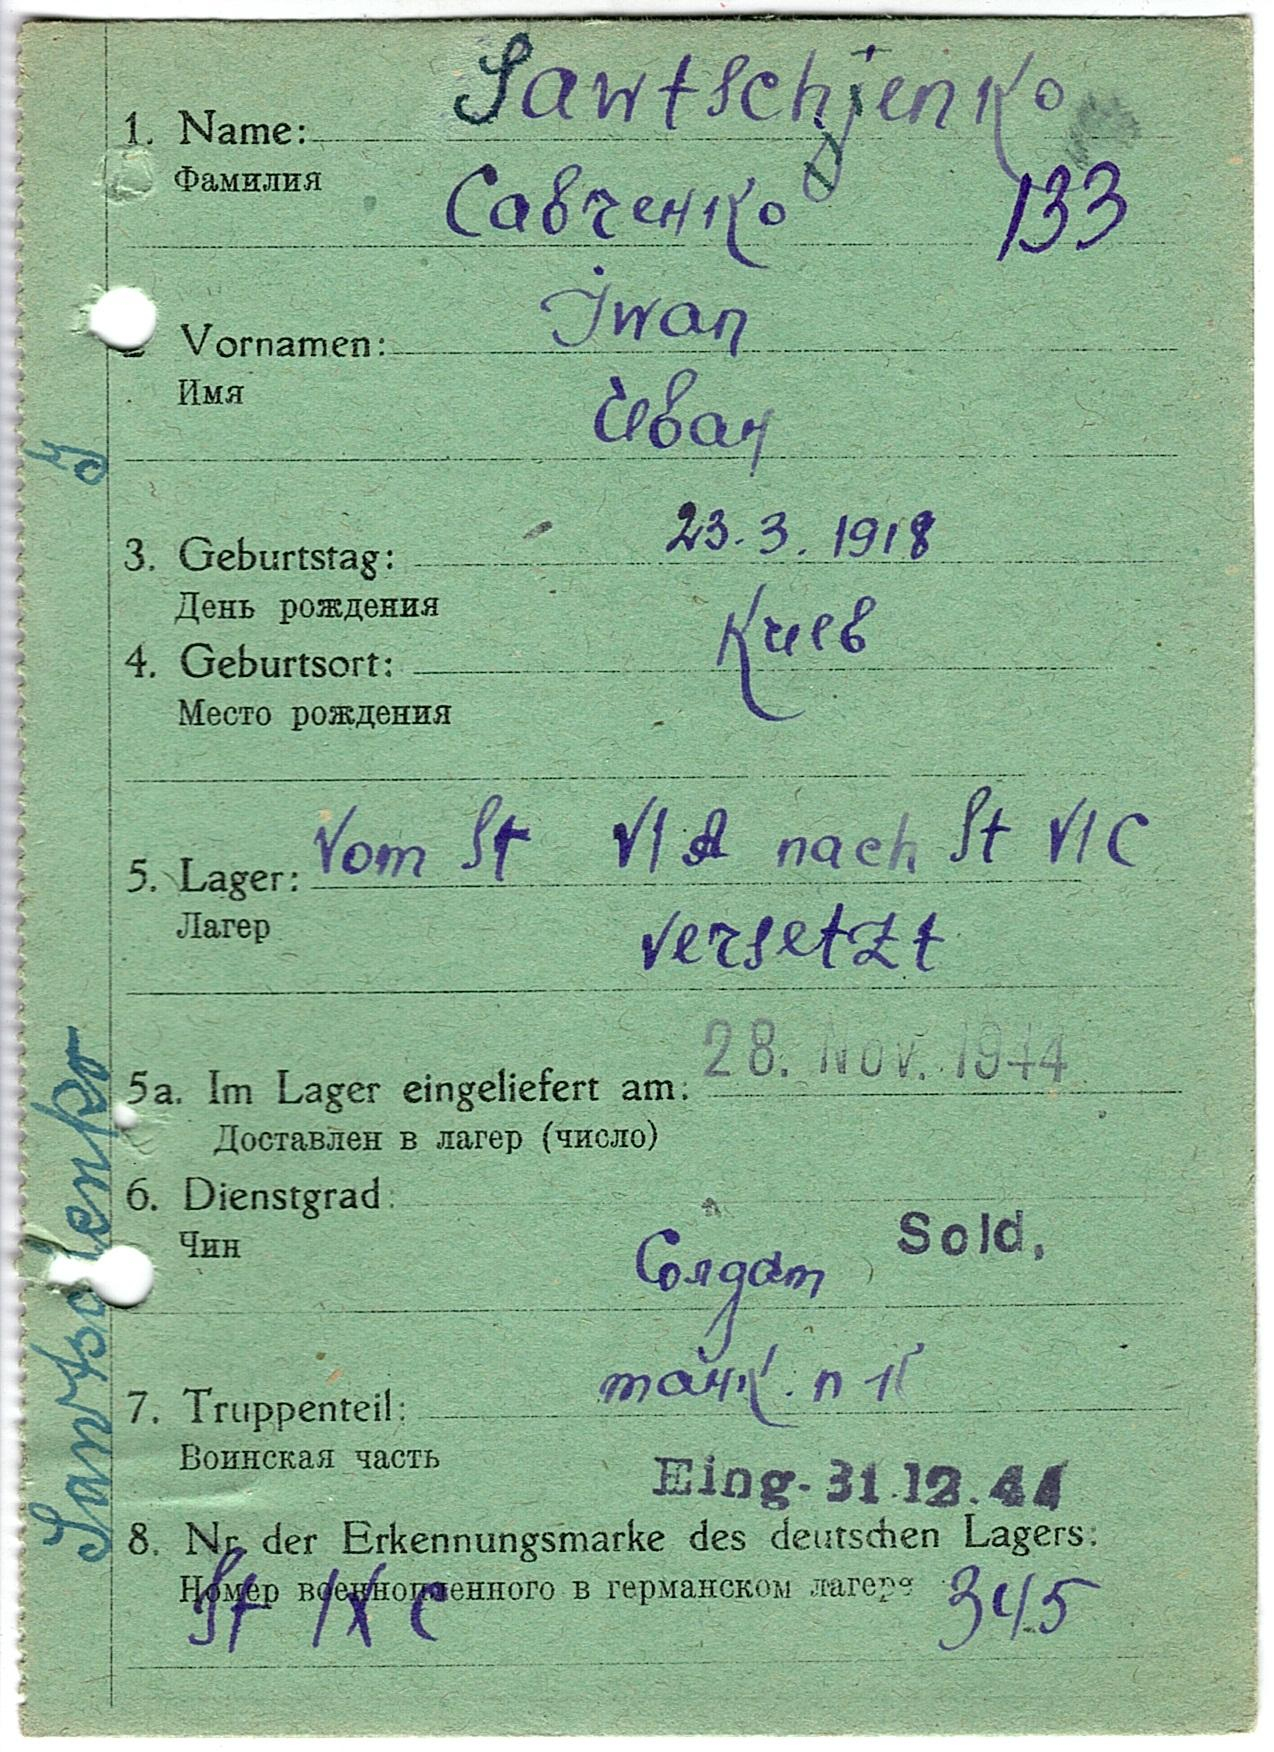 Sawtschjenko
1. Name:
Фамилия
Савченко 133
Iwan
Vornamen:
Имя
Иван
23.3.1918
3. Geburtstag:
День рождения
Киев
4. Geburtsort:
Место рождения
Vom St VI A nach St VI C
5. Lager:
Лагер
versetzt
28. Nov. 1944
5a. Im Lager eingeliefert am:
Доставлен в лагер (число)
6. Dienstgrad:
Чин
Sold.
Солдат
танк. п
7. Truppenteil:
Воинская часть
Eing. 31.12.44
8. Nr. der Erkennungsmarke des deutschen Lagers:
Номер военнопленного в германском лагере
St IX C 345
Sawtschenko J